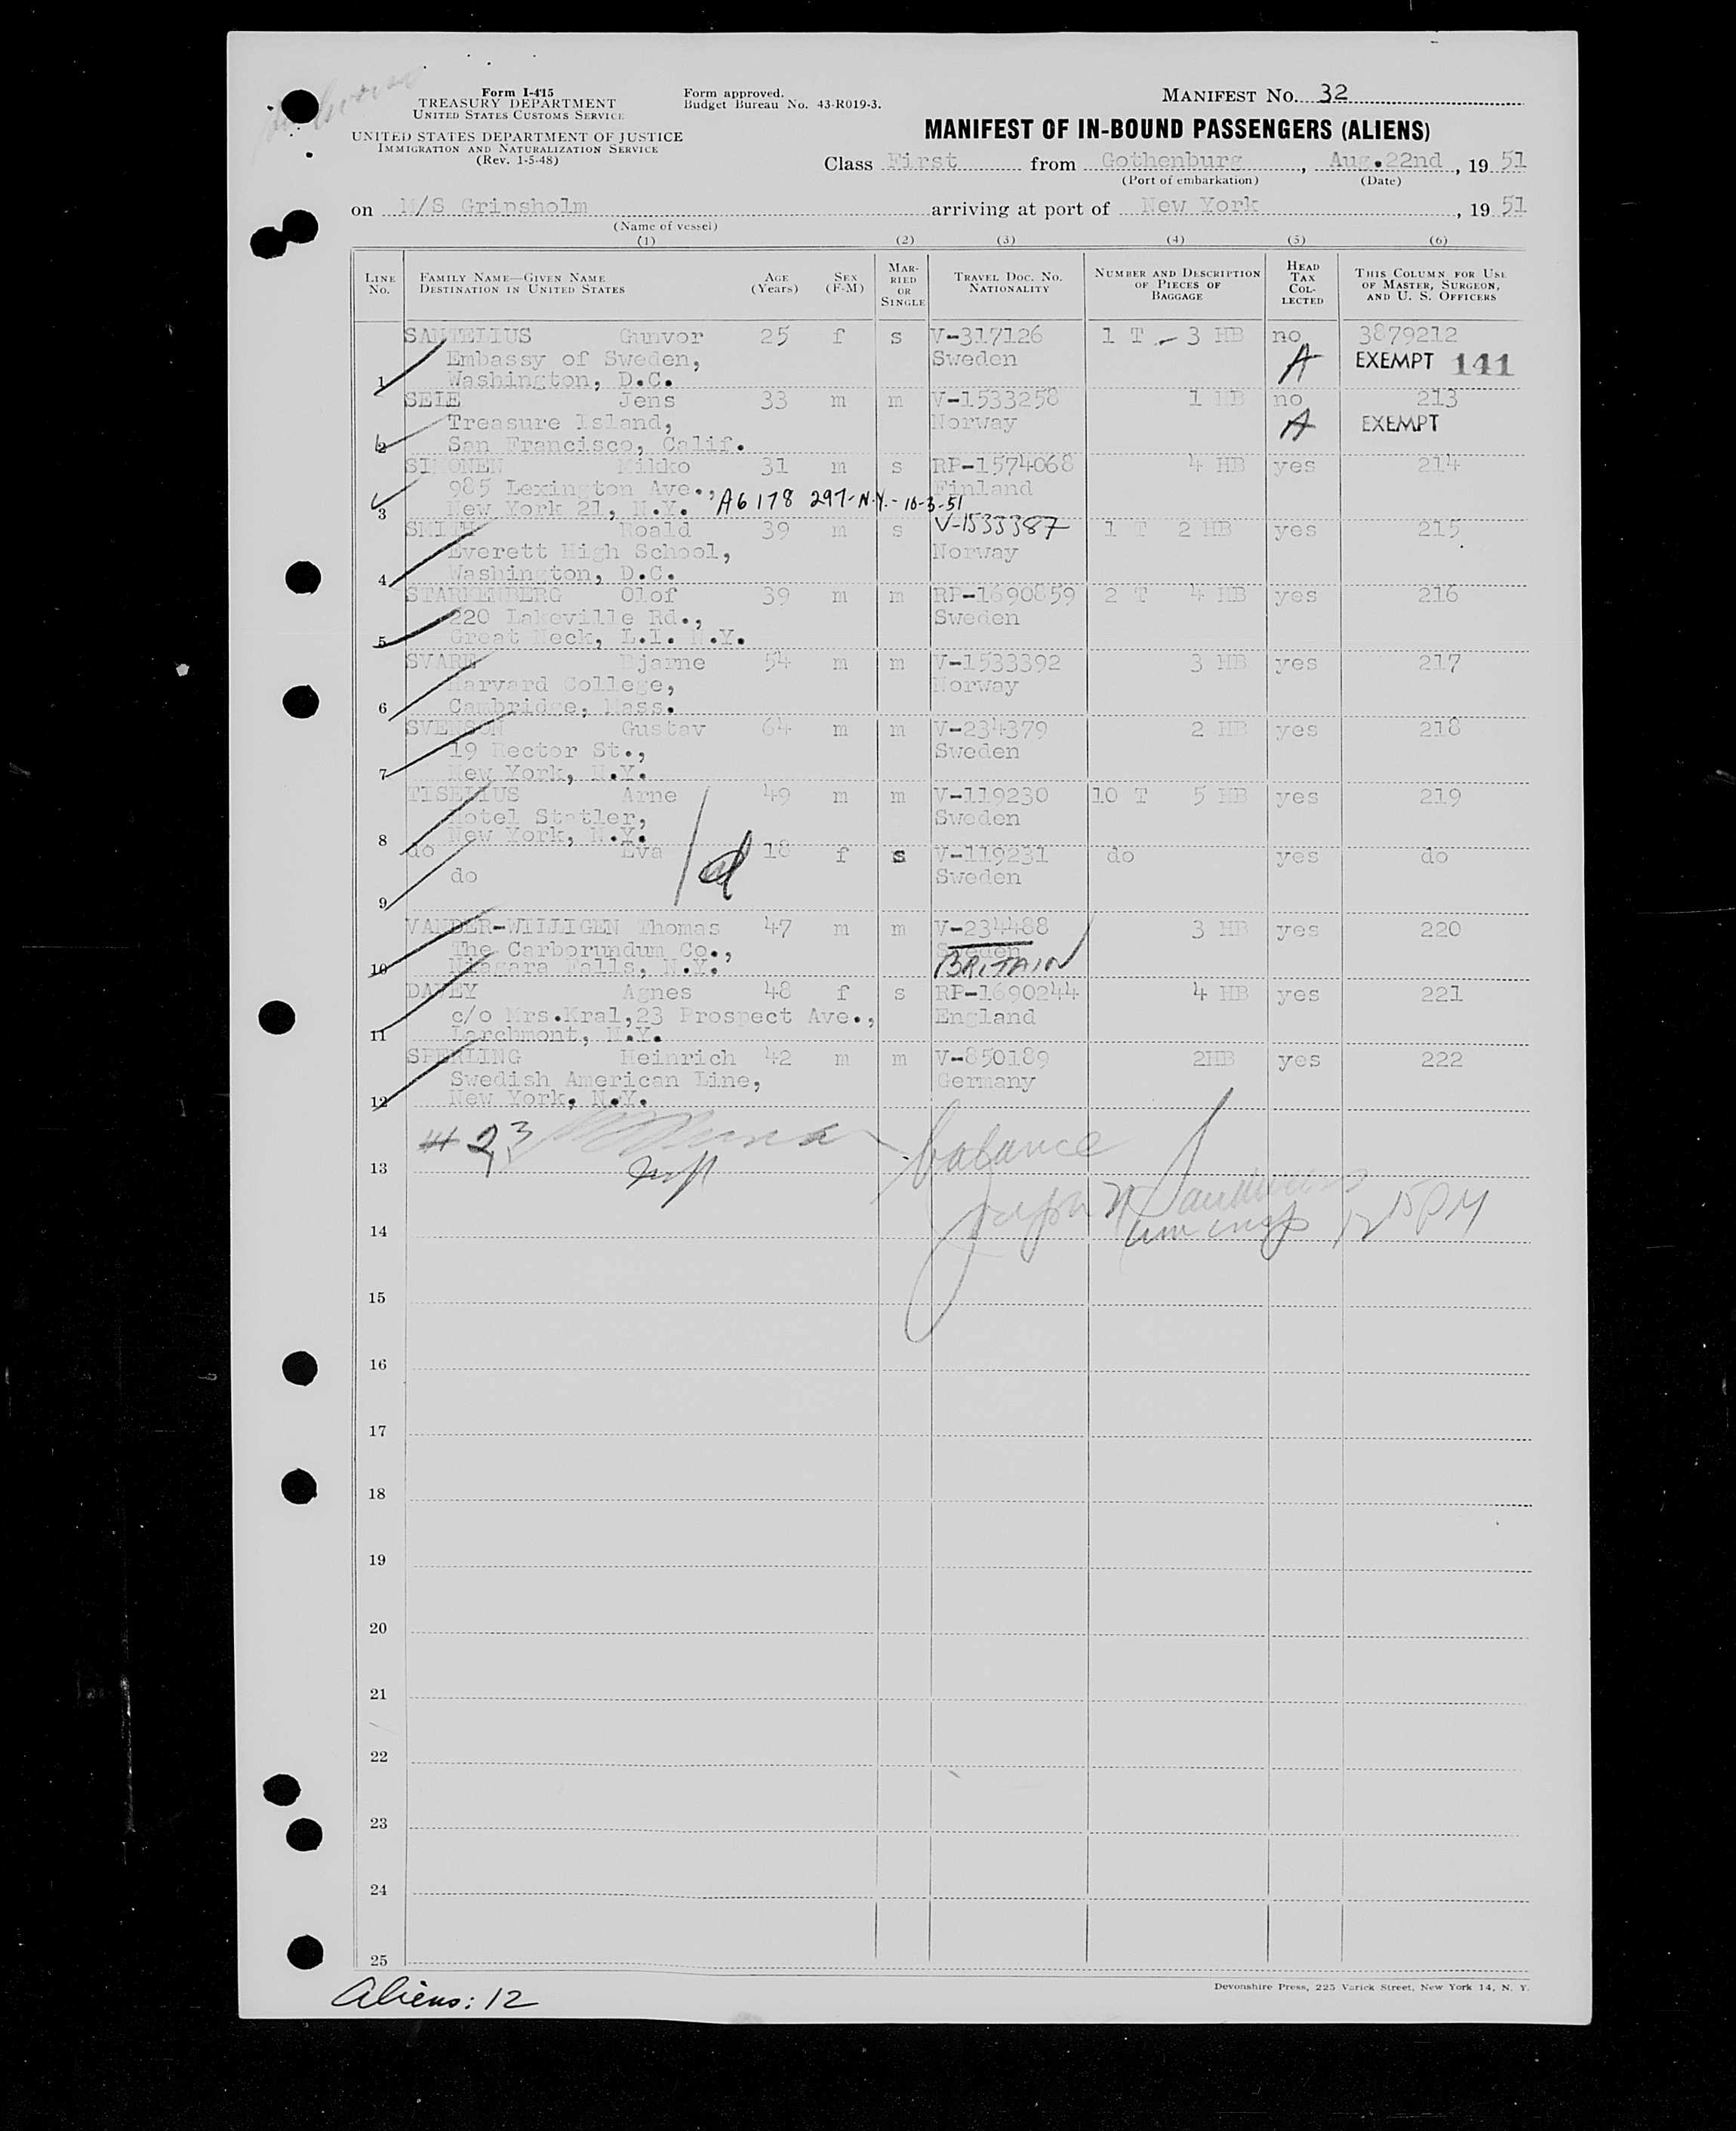 Form I-415
TREASURY DEPARTMENT
UNITED STATES CUSTOMS SERVICE
UNITED STATES DEPARTMENT OF JUSTICE
IMMIGRATION AND NATURALIZATION SERVICE
(Rev. 1-5-48)
Form approved.
Budget Bureau No. 43-R019-3.
MANIFEST NO. 32
MANIFEST OF IN-BOUND PASSENGERS (ALIENS)
Class First from Gothenburg, Aug.22nd, 19 51
(Port of embarkation) (Date)
on M/S Gripsholm arriving at port of New York, 19 51
(Name of vessel)
(1) (2) (3) (4) (5) (6)
LINE NO. FAMILY NAME—GIVEN NAME DESTINATION IN UNITED STATES AGE (Years) SEX (F-M) MARRIED OR SINGLE TRAVEL DOC. NO. NATIONALITY NUMBER AND DESCRIPTION OF PIECES OF BAGGAGE HEAD TAX COLLECTED THIS COLUMN FOR USE OF MASTER, SURGEON, AND U. S. OFFICERS
SANTELIUS Gunvor 25 f s V-317126 1 T - 3 HB no 3879212
Embassy of Sweden, Sweden A EXEMPT 141
1 Washington, D.C.
SEIE Jens 33 m m V-1533258 1 HB no 213
Treasure Island, Norway A EXEMPT
2 San Francisco, Calif.
SIMONEN Mikko 31 m s RP-1574068 4 HB yes 214
985 Lexington Ave., Finland
3 New York 21, N.Y. A6 178 297-N.Y.-10-3-51
SMITH Roald 39 m s V-1533387 1 T 2 HB yes 215
Everett High School, Norway
4 Washington, D.C.
STARKENBERG Olof 39 m m RP-1690859 2 T 4 HB yes 216
220 Lakeville Rd., Sweden
5 Great Neck, L.I. N.Y.
SVARE Bjarne 54 m m V-1533392 3 HB yes 217
Harvard College, Norway
6 Cambridge, Mass.
SVENSON Gustav 64 m m V-234379 2 HB yes 218
19 Rector St., Sweden
7 New York, N.Y.
TISELIUS Arne 49 m m V-119230 10 T 5 HB yes 219
Hotel Statler, Sweden
8 New York, N.Y.
do Eva 18 f s V-119231 do yes do
do Sweden
9
VANDER-WILLIGEN Thomas 47 m m V-234488 3 HB yes 220
The Carborundum Co., Sweden
10 Niagara Falls, N.Y. BRITAIN
DAVEY Agnes 48 f s RP-1690244 4 HB yes 221
c/o Mrs.Kral,23 Prospect Ave., England
11 Larchmont, N.Y.
SPERLING Heinrich 42 m m V-850189 2HB yes 222
Swedish American Line, Germany
12 New York, N.Y.
balance
13
14
15
16
17
18
19
20
21
22
23
24
25
Aliens: 12
Devonshire Press, 225 Varick Street, New York 14, N. Y.